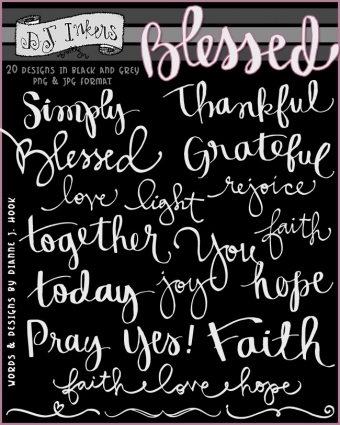 DJ Inkers
Blessed
20 DESIGNS IN BLACK AND GREY
PNG & JPG FORMAT
Simply
Thankful
Blessed
Grateful
love light rejoice
faith
together You
today joy hope
Pray Yes! Faith
faith love hope
WORDS & DESIGNS BY DIANNE J. HOOK